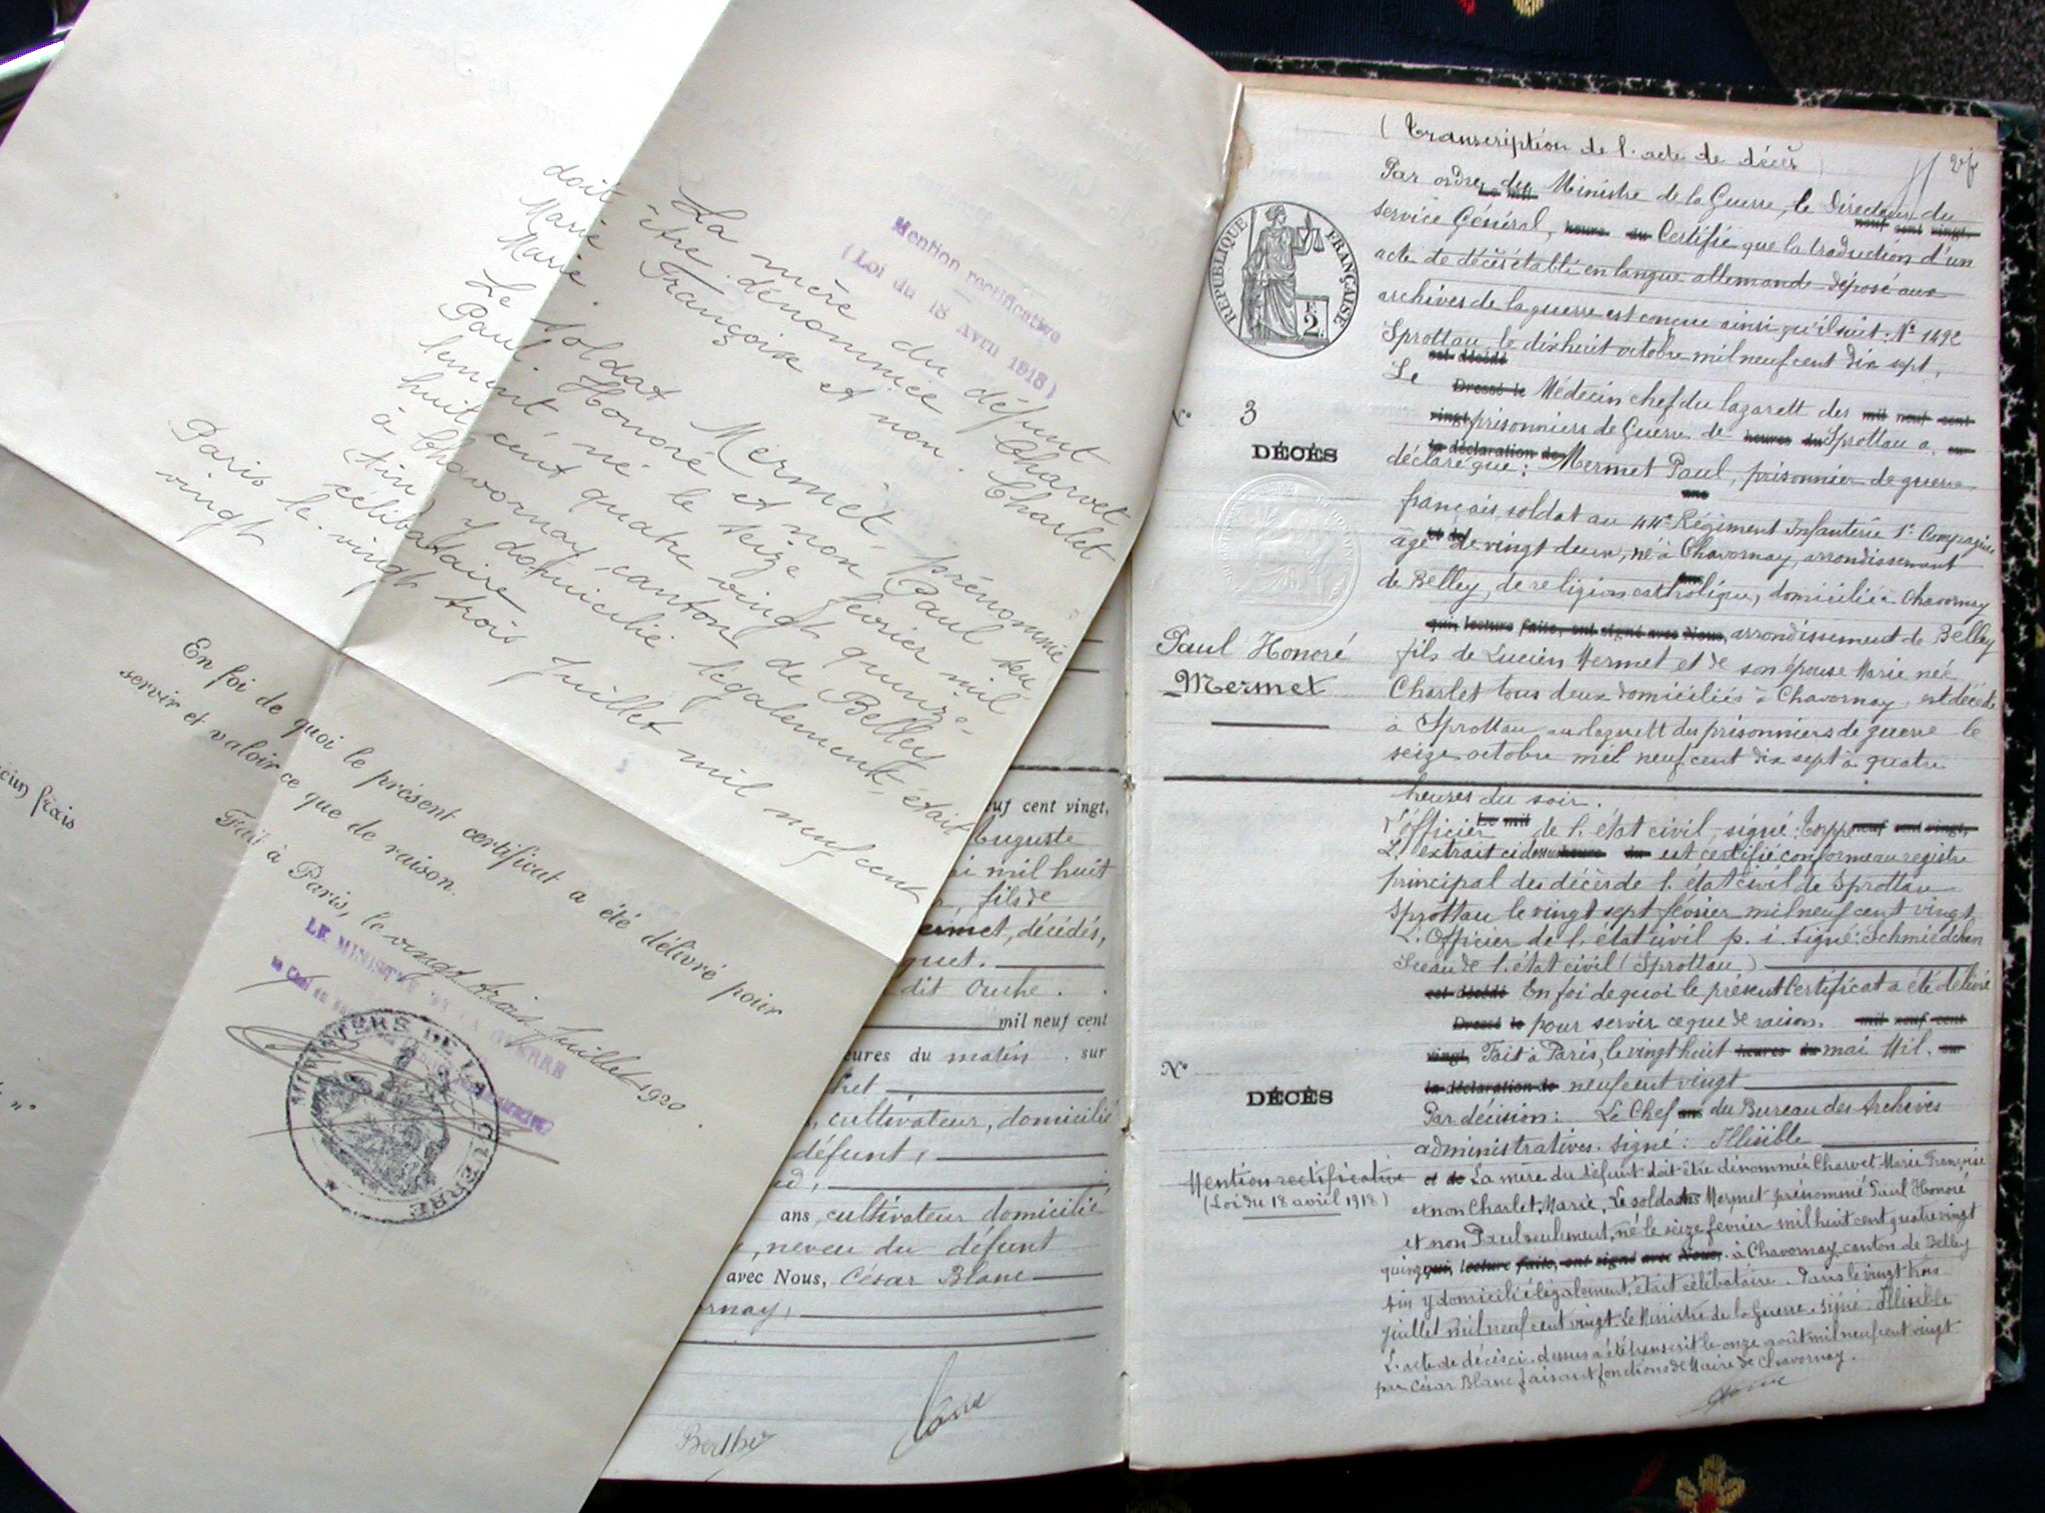 doit être dénommée Charvet
Marie Françoise et non Charlet
Marie.
La mère du défunt
Mention rectificative
(Loi du 18 Avril 1918)
Le soldat Mermet, prénommé
Paul Honoré et non Paul seu
lement, né le seize février mil
huit cent quatre vingt quinze
à Chavornay, canton de Belley
(Ain) y domicilié légalement, était
célibataire
Paris le vingt trois Juillet mil neuf cent
vingt
En foi de quoi le présent certificat a été délivré pour
servir et valoir ce que de raison.
Fait à Paris, le vingt trois Juillet 1920
LE MINISTRE DE LA GUERRE
MINISTÈRE DE LA GUERRE
frais
neuf cent vingt,
Auguste
mil huit
fils de
décédés,
dit Ouche.
mil neuf cent
heures du matin. sur
cultivateur, domicilié
défunt,
ans, cultivateur domicilié
neveu du défunt
avec Nous, César Blanc
Berthet
(Transcription de l'acte de décès)
Par ordre du Ministre de la Guerre, le Directeur du
service Général, Certifie que la traduction d'un
acte de décès établi en langue allemande déposé aux
archives de la guerre est conçue ainsi qu'il suit: N° 1492
Sprottau, le dix huit octobre mil neuf cent dix sept,
Le Médecin chef du lazarett des
prisonniers de Guerre de Sprottau a
déclaré que: Mermet Paul, prisonnier de guerre
français, soldat au 44e Régiment Infanterie 1e Compagnie
âgé de vingt deux, né à Chavornay, arrondissement
de Belley, de religion catholique, domicilié à Chavornay
arrondissement de Belley
fils de Lucien Mermet et de son épouse Marie née
Charlet tous deux domiciliés à Chavornay, est décédé
à Sprottau au lazarett des prisonniers de guerre le
seize octobre mil neuf cent dix sept à quatre
heures du soir.
REPUBLIQUE FRANÇAISE
2
N° 3
DÉCÈS
Paul Honoré
Mermet
L'officier de l'état civil, signé:
L'extrait ci dessus est certifié conforme au registre
principal des décès de l'état civil de Sprottau
Sprottau le vingt sept février mil neuf cent vingt
L'Officier de l'état civil p. i. signé:
Sceau de l'état civil (Sprottau)
En foi de quoi le présent Certificat a été délivré
pour servir ce que de raison.
Fait à Paris, le vingt huit mai Mil
neuf cent vingt
Par décision: Le Chef du Bureau des Archives
administratives. signé: Illisible
N°
DÉCÈS
Mention rectificative
(Loi du 18 avril 1918)
La mère du défunt doit être dénommée Charvet Marie Françoise
et non Charlet Marie, Le soldat Mermet prénommé Paul Honoré
et non Paul seulement, né le seize février mil huit cent quatre vingt
quinze à Chavornay canton de Belley
Ain y domicilié légalement, était célibataire. Paris le vingt trois
juillet mil neuf cent vingt. Le Ministre de la Guerre. signé: Illisible
L'acte de décès ci-dessus a été transcrit le onze août mil neuf cent vingt
par César Blanc faisant fonctions de Maire de Chavornay.